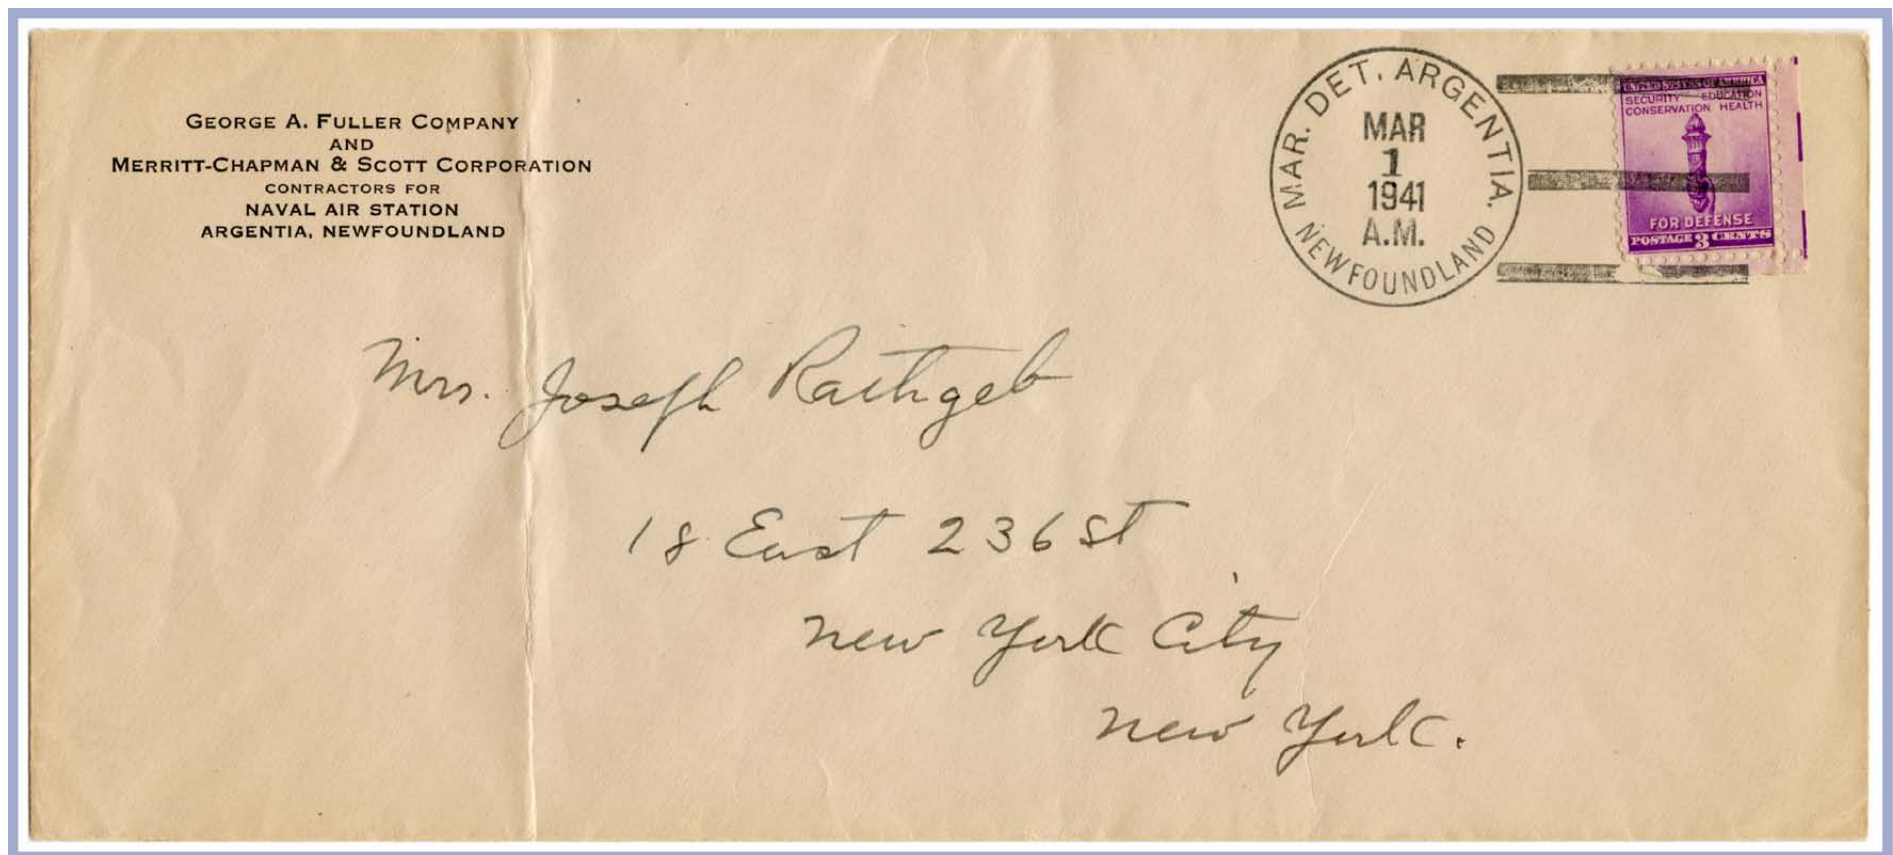 GEORGE A. FULLER COMPANY
AND
MERRITT-CHAPMAN & SCOTT CORPORATION
CONTRACTORS FOR
NAVAL AIR STATION
ARGENTIA, NEWFOUNDLAND
MAR. DET. ARGENTIA.
MAR
1
1941
A.M.
NEWFOUNDLAND
UNITED STATES OF AMERICA
SECURITY EDUCATION
CONSERVATION HEALTH
FOR DEFENSE
POSTAGE 3 CENTS
Mrs. Joseph Rathgeb
18 East 236 St
New York City
New York.